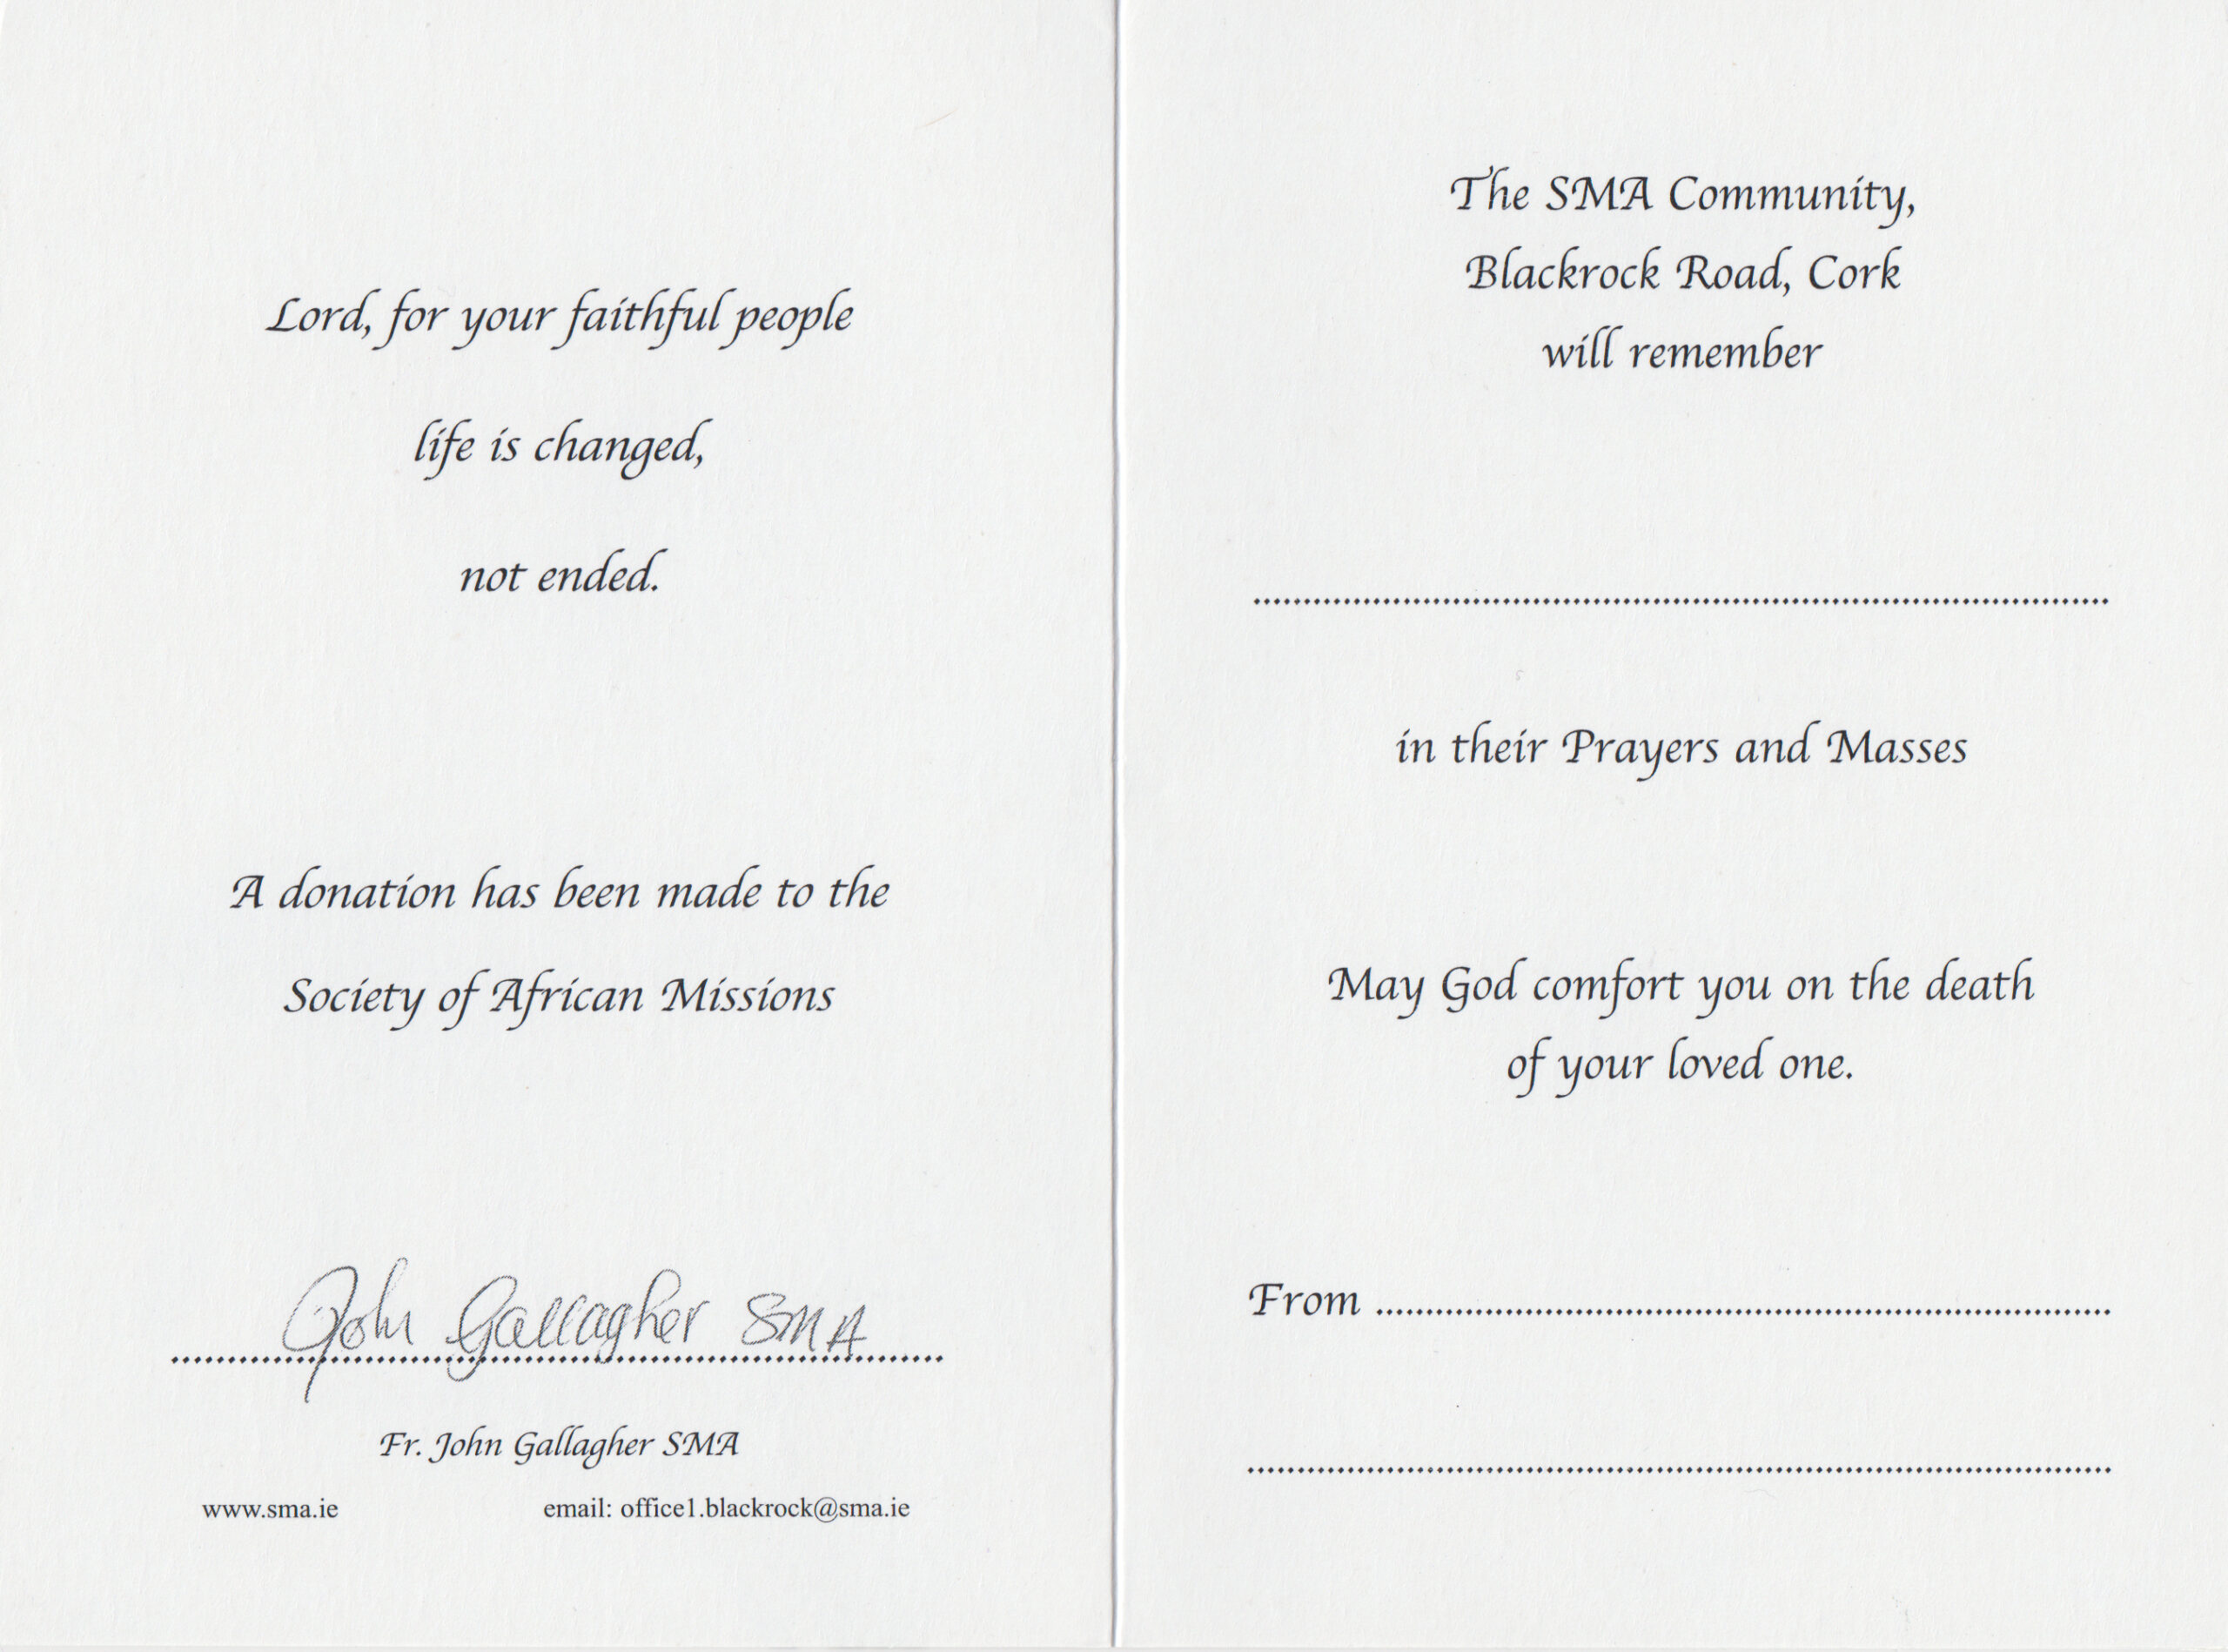 Lord, for your faithful people
life is changed,
not ended.
A donation has been made to the
Society of African Missions
John Gallagher SMA
Fr. John Gallagher SMA
www.sma.ie email: office1.blackrock@sma.ie
The SMA Community,
Blackrock Road, Cork
will remember
in their Prayers and Masses
May God comfort you on the death
of your loved one.
From